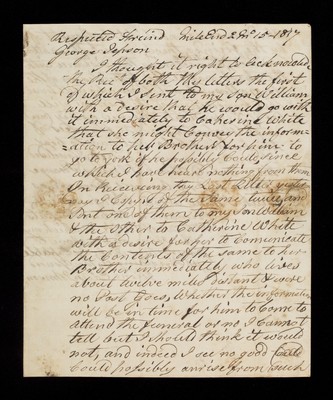 Respected Freind Mile End 2 Mo 15 - 1817
George Jepson
I thought it right to acknowledg
the Rec. of both thy letters the first
of which I sent to my Son William
with a Desire that he would go with
it immediately to Catherine White
that she might Convey the inform=
=ation to her Brother for him to
go to york if he possibly Could since
which I have heard nothing from them
On Receiving thy Last Letter yester
day I Copied of the Same twice and
Sent one of them to my Son William
& the other to Catherine White
with a desire for her to Comunicate
the Contents of the same to her
Brother immediately who lives
about twelve miles Distant & were
no Post Goes, Whether the information
will be in time for him to Come to
attend the funeral or no I Cannot
tell but I should think it would
not, and indeed I see no good
Could possibly arrise from such